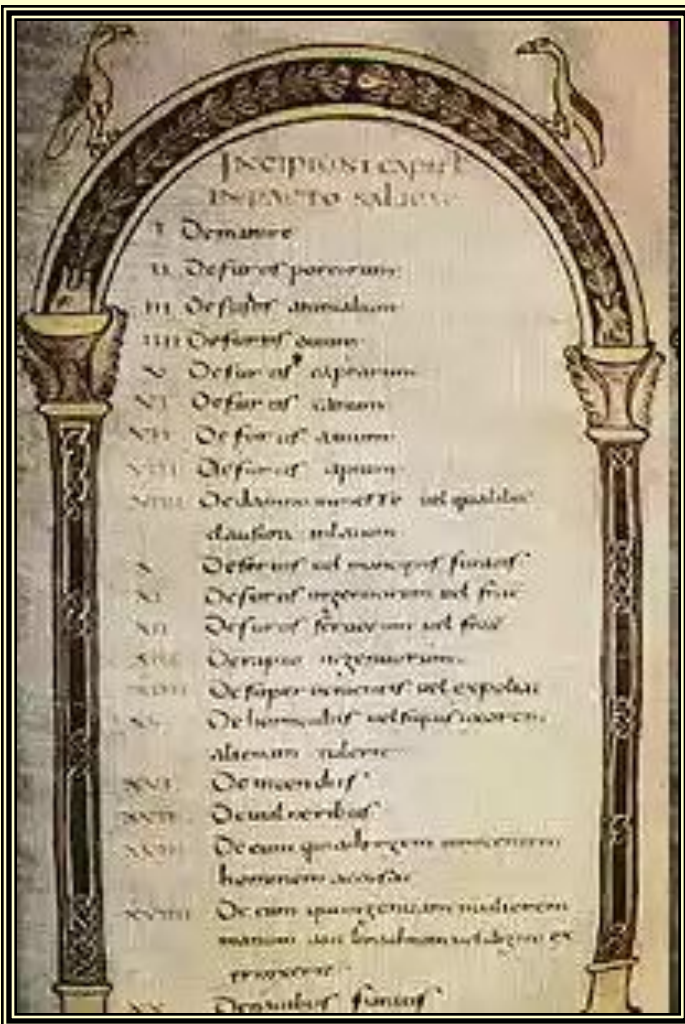 INCIPIUNT CAPITL
IN PACTO SALICAE
I De mannire
II De furtis porcorum
III De furtis animalium
IIII De furtis ouium
V De furtis caprarum
VI De furtis canum
VII De furtis auium
VIII De furtis apium
VIIII De damno in messe uel qualibet
clausura
X De seruis uel mancipiis furatis
XI De furtis ingenuorum uel
XII De furtis seruorum uel
XIII De rapto ingenuorum
XIIII De superuenientis uel expoliat
XV De homicidiis uel si quis uxorem
alienam tulerit
XVI De incendiis
XVII De uulneribus
XVIII De eum qui ad regem innocentem
hominem accusat
XVIIII De eum qui ingenuam mulierem
manum aut brachium uel ex
XX De nauibus furatis